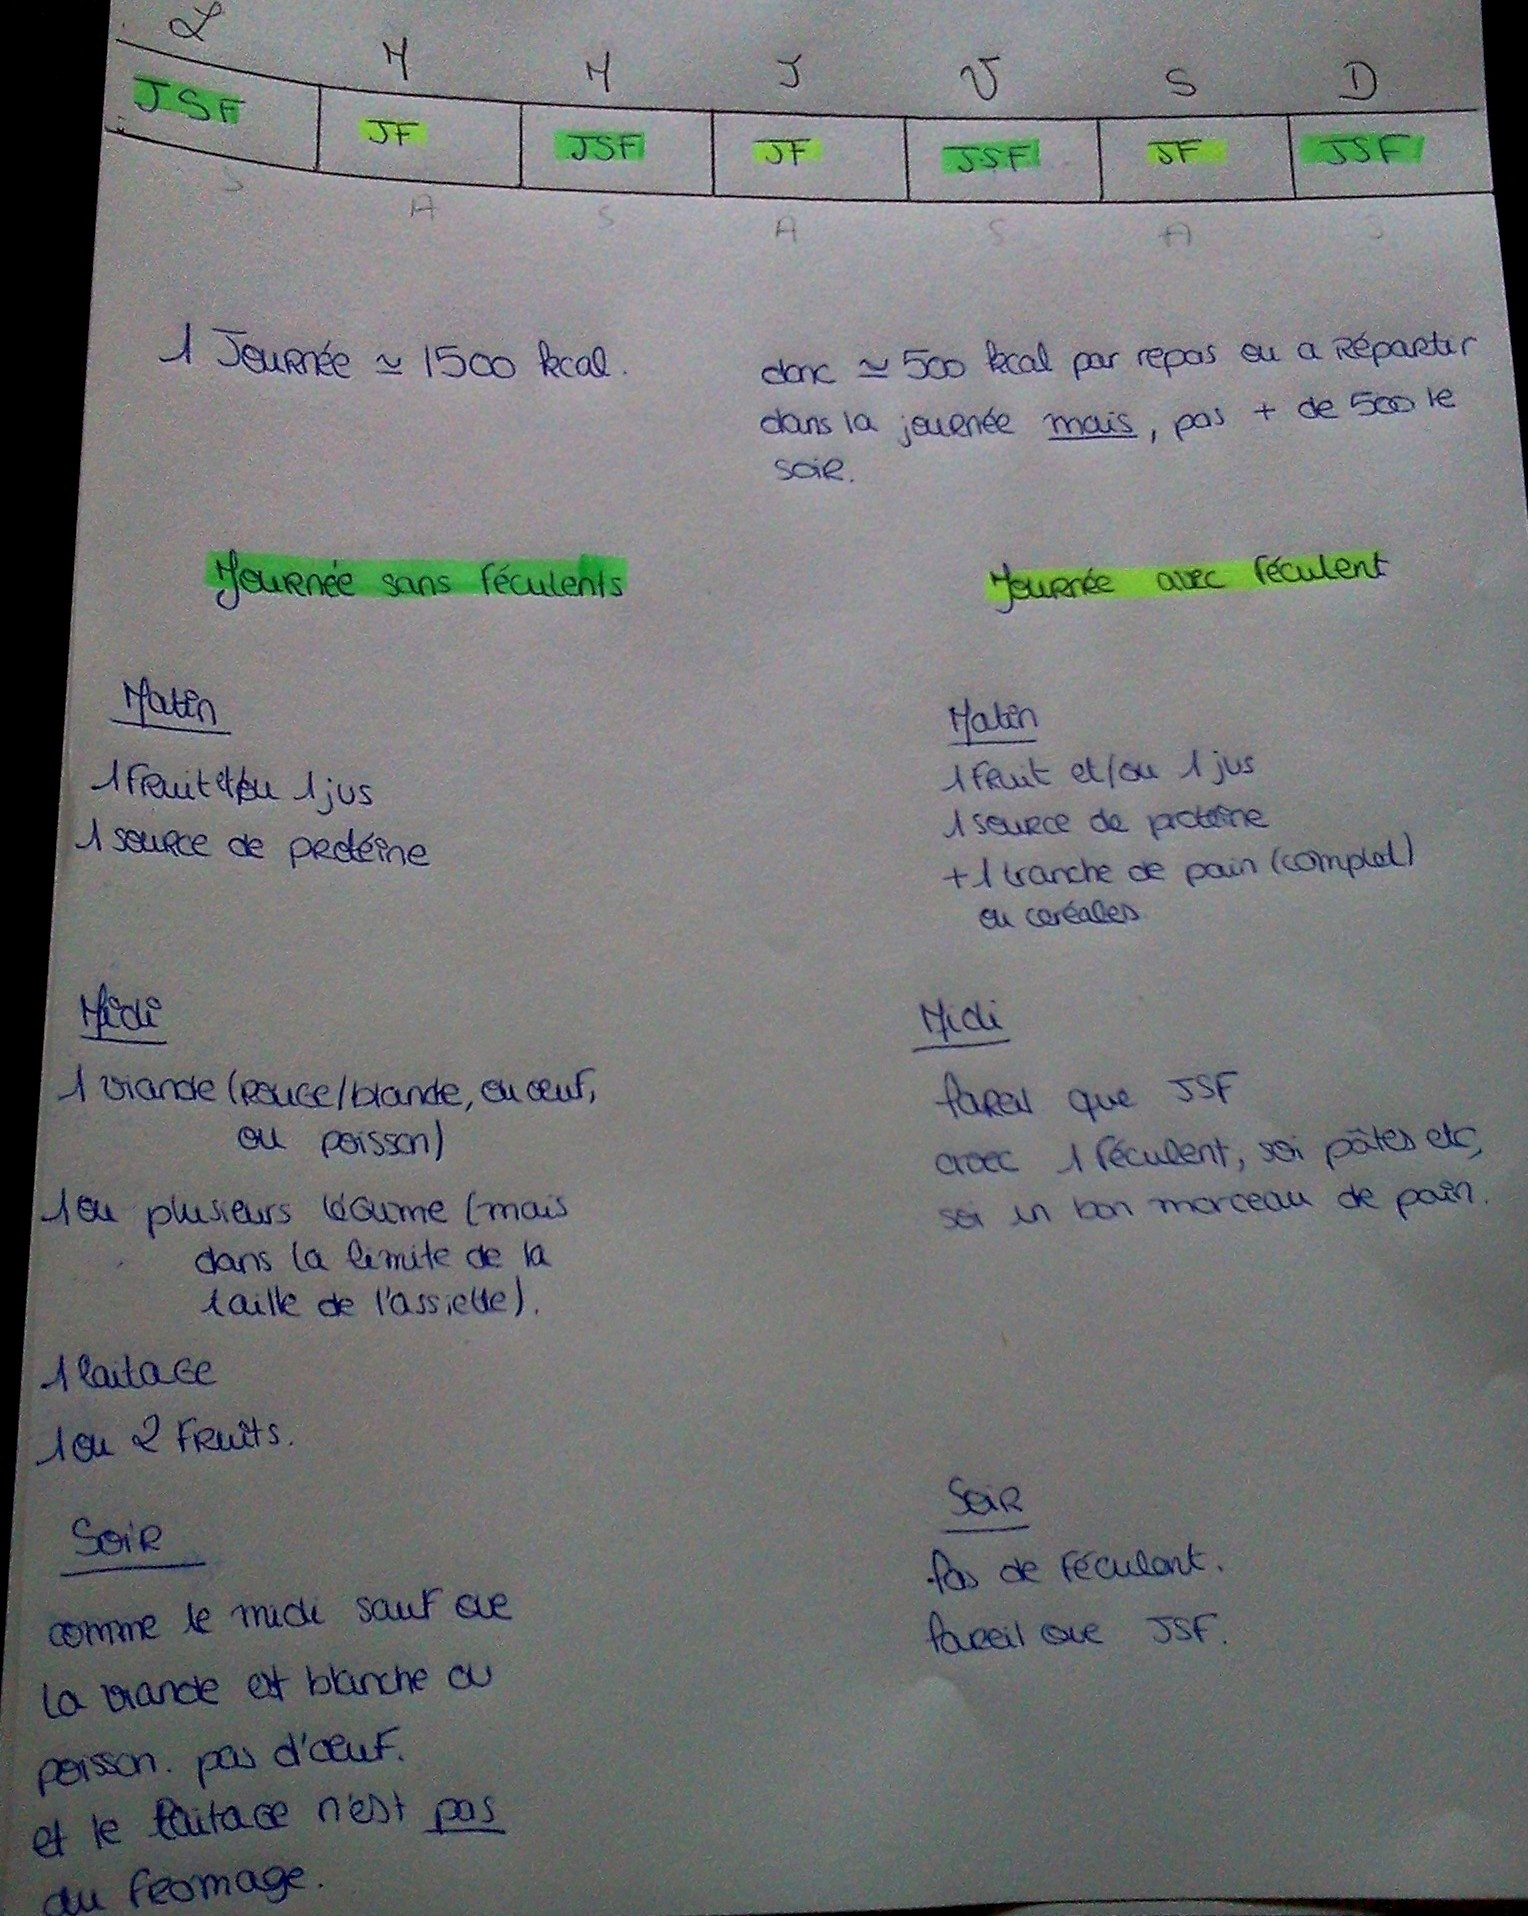 L M M J V S D
JSF JF JSF JF JSF JF JSF
S A S A S A S
1 Journée ≃ 1500 kcal.
donc ≃ 500 kcal par repas ou a Répartir
dans la journée mais, pas + de 500 le
soir.
Journée sans féculents
Matin
1 Fruit et/ou 1 jus
1 source de protéine
Midi
1 viande (rouge/blande, ou œuf,
ou poisson)
1 ou plusieurs légume (mais
dans la limite de la
taille de l'assiette).
1 laitage
1 ou 2 Fruits.
Soir
comme le midi sauf que
la viande est blanche ou
poisson. pas d'œuf.
et le laitage n'est pas
du fromage.
Journée avec féculent
Matin
1 Fruit et/ou 1 jus
1 source de protéine
+ 1 tranche de pain (complet)
ou céréales
Midi
Pareil que JSF
avec 1 féculent, soi pâtes etc,
soi un bon morceau de pain.
Soir
Pas de féculant.
Pareil que JSF.